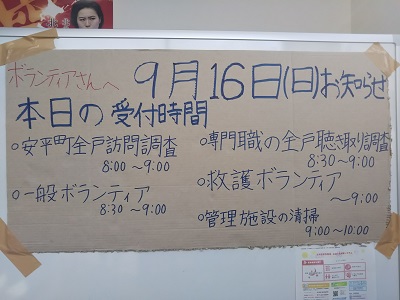 ボランティアさんへ 9月16日(日)お知らせ
本日の受付時間
○安平町全戸訪問調査
8:00～9:00
○一般ボランティア
8:30～9:00
○専門職の全戸聴き取り調査
8:30～9:00
○救護ボランティア
～9:00
○管理施設の清掃
9:00～10:00